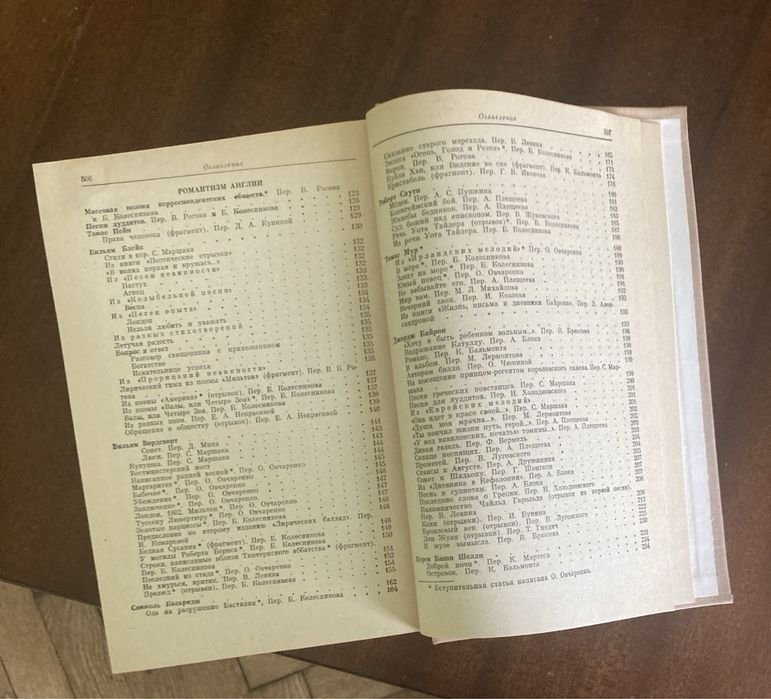 Оглавление
506
РОМАНТИЗМ АНГЛИИ
Массовая поэзия корреспондентских обществ.* Пер. В. Рогова
и Б. Колесникова 123
Песни луддитов. Пер. В. Рогова и Б. Колесникова 126
Томас Пейн 129
Права человека (фрагмент). Пер. Д. А. Куниной 130
Вильям Блейк
Стихи в пер. С. Маршака 132
Из книги «Поэтические отрывки» 132
«В полях порхая и кружась...» 132
Из «Песен невинности» 132
Пастух
Агнец
Из «Колыбельной песни»
Весна 134
Из «Песен опыта»
Лондон
Нельзя любить и уважать
Из разных стихотворений
Летучая радость 135
Вопрос и ответ 135
Разговор священника с прихожанином
Богатство
Искательнице успеха
Из «Прорицаний невинности» 136
Лирический гимн из поэмы «Мильтон» (фрагмент). Пер. В. В. Ро-
гова 137
Из поэмы «Америка» * (отрывок). Пер. Б. Колесникова 137
Из поэмы «Валы, или Четыре Зоа». Пер. Б. Колесникова 138
Валы, или Четыре Зоа. Пер. Б. Колесникова 139
Из разных поэм. Пер. Е. А. Некрасовой 140
Обращение к обществу (отрывок). Пер. Е. А. Некрасовой
Вильям Вордсворт 141
Сонет. Пер. Д. Мина 143
Люси. Пер. С. Маршака 144
Кукушка. Пер. С. Маршака 144
Вестминстерский мост 145
Написанное ранней весной *. Пер. О. Овчаренко 146
Маргаритке *. Пер. О. Овчаренко 147
Бабочке *. Пер. О. Овчаренко 147
Убеждение *. Пер. О. Овчаренко
Заключение *. Пер. О. Овчаренко
Лондон, 1802. Мильтон *. Пер. О. Овчаренко
Туссену Лювертюру *. Пер. О. Овчаренко 148
Золотые нарциссы *. Пер. Б. Колесникова
Предисловие ко второму изданию «Лирических баллад». Пер.
И. Комаровой 148
Бедная Сусанна * (фрагмент). Пер. Б. Колесникова 149
У могилы Роберта Бернса *. Пер. Б. Колесникова 150
Строки, написанные вблизи Тинтернского аббатства * (фрагмент).
Пер. Б. Колесникова 151
Последний из стада *. Пер. О. Овчаренко 152
Не хмурься, критик. Пер. В. Левика 154
Прелюд * (отрывок). Пер. Б. Колесникова 155
Самюэль Кольридж 162
Ода на разрушение Бастилии *. Пер. Б. Колесникова 164
Оглавление
507
Сказание старого морехода. Пер. В. Левика 165
Эклога «Огонь, Голод и Резня» *. Пер. Б. Колесникова 171
Ворон. Пер. В. Рогова 173
Кубла Хан, или Видение во сне (фрагмент). Пер. К. Бальмонта 174
Кристабель (фрагмент). Пер. Г. В. Иванова 176
Роберт Саути
Мэдок. Пер. А. С. Пушкина 180
Бленгеймский бой. Пер. А. Плещеева 181
Жалобы бедняков. Пер. А. Плещеева
Суд божий над епископом. Пер. В. Жуковского 183
Речь Уота Тайлера (отрывок) *. Пер. Б. Колесникова 185
Из речи Уота Тайлера. Пер. Б. Колесникова 187
Томас Мур *
Из «Ирландских мелодий» * Пер. О. Овчаренко 188
В море *. Пер. Б. Колесникова 189
Закат на море *. Пер. Б. Колесникова 190
Юный певец *. Пер. О. Овчаренко 191
Не забывайте его. Пер. А. Плещеева
Мир вам. Пер. М. Л. Михайлова
Вечерний звон. Пер. И. Козлова 192
Из книги «Жизнь, письма и дневники Байрона». Пер. З. Алек-
сандровой 193
Джордж Байрон
«Хочу я быть ребенком вольным...». Пер. В. Брюсова
Подражание Катуллу. Пер. А. Блока 196
Романс. Пер. К. Бальмонта
В альбом. Пер. М. Лермонтова 198
Авторам билля. Пер. О. Чюминой 198
На посещение принцем-регентом королевского склепа. Пер. С. Мар-
шака 199
Песня греческих повстанцев. Пер. С. Маршака
Песня для луддитов. Пер. Н. Холодковского 200
Из «Еврейских мелодий»
«Она идет в красе своей...». Пер. С. Маршака 201
«Душа моя мрачна...». Пер. М. Лермонтова
«Ты кончил жизни путь, герой...». Пер. А. Плещеева
«У вод вавилонских, печалью томимы...». Пер. А. Плещеева
Дикая газель. Пер. Ф. Вермель
Солнце неспящих. Пер. А. Плещеева
Прометей. Пер. В. Луговского
Стансы к Августе. Пер. А. Дружинина
Сонет к Шильону. Пер. Г. Шенгели
Из «Дневника в Кефалонии». Пер. А. Блока
Песнь к сулиотам. Пер. А. Блока
Последние слова о Греции. Пер. Н. Холодковского
Паломничество Чайльд Гарольда (отрывки из первой песни).
Пер. В. Левика
Каин (отрывки). Пер. И. Бунина
Бронзовый век (отрывки). Пер. В. Луговского
Дон Жуан (отрывки). Пер. Т. Гнедич
К музе вымысла. Пер. В. Брюсова
Перси Биши Шелли 231
Доброй ночи *. Пер. К. Мартеса 234
Островок. Пер. К. Бальмонта 234
* Вступительная статья написана О. Овчаренко.